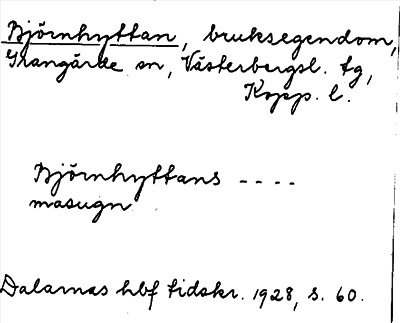 Björnhyttan, bruksegendom,
Grangärde sn, Västerbergsl. tg,
Kopp. l.
Björnhyttans ----
masugn
Dalarnas hbf tidskr. 1928, s. 60.